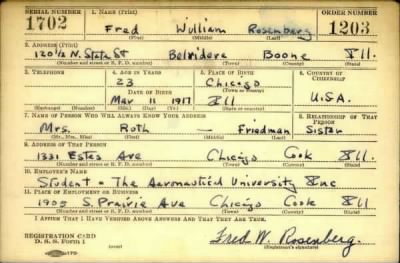 SERIAL NUMBER 1. NAME (Print) ORDER NUMBER
1702 Fred William Rosenberg 1203
(First) (Middle) (Last)
2. ADDRESS (Print)
120½ N. State St Belvidere Boone Ill.
(Number and street or R. F. D. number) (Town) (County) (State)
3. TELEPHONE 4. AGE IN YEARS 5. PLACE OF BIRTH 6. COUNTRY OF CITIZENSHIP
23 Chicago
DATE OF BIRTH (Town or County)
Mar 11 1917 Ill U.S.A.
(Exchange) (Number) (Mo.) (Day) (Yr.) (State or country)
7. NAME OF PERSON WHO WILL ALWAYS KNOW YOUR ADDRESS 8. RELATIONSHIP OF THAT PERSON
Mrs. Ruth — Friedman Sister
(Mr., Mrs., Miss) (First) (Middle) (Last)
9. ADDRESS OF THAT PERSON
1331 Estes Ave Chicago Cook Ill.
(Number and street or R. F. D. number) (Town) (County) (State)
10. EMPLOYER'S NAME
Student - The Aeronautical University Inc
11. PLACE OF EMPLOYMENT OR BUSINESS
1905 S. Prairie Ave Chicago Cook Ill
(Number and street or R. F. D. number) (Town) (County) (State)
I AFFIRM THAT I HAVE VERIFIED ABOVE ANSWERS AND THAT THEY ARE TRUE.
REGISTRATION CARD
D. S. S. Form 1 Fred W. Rosenberg.
(Registrant's signature)